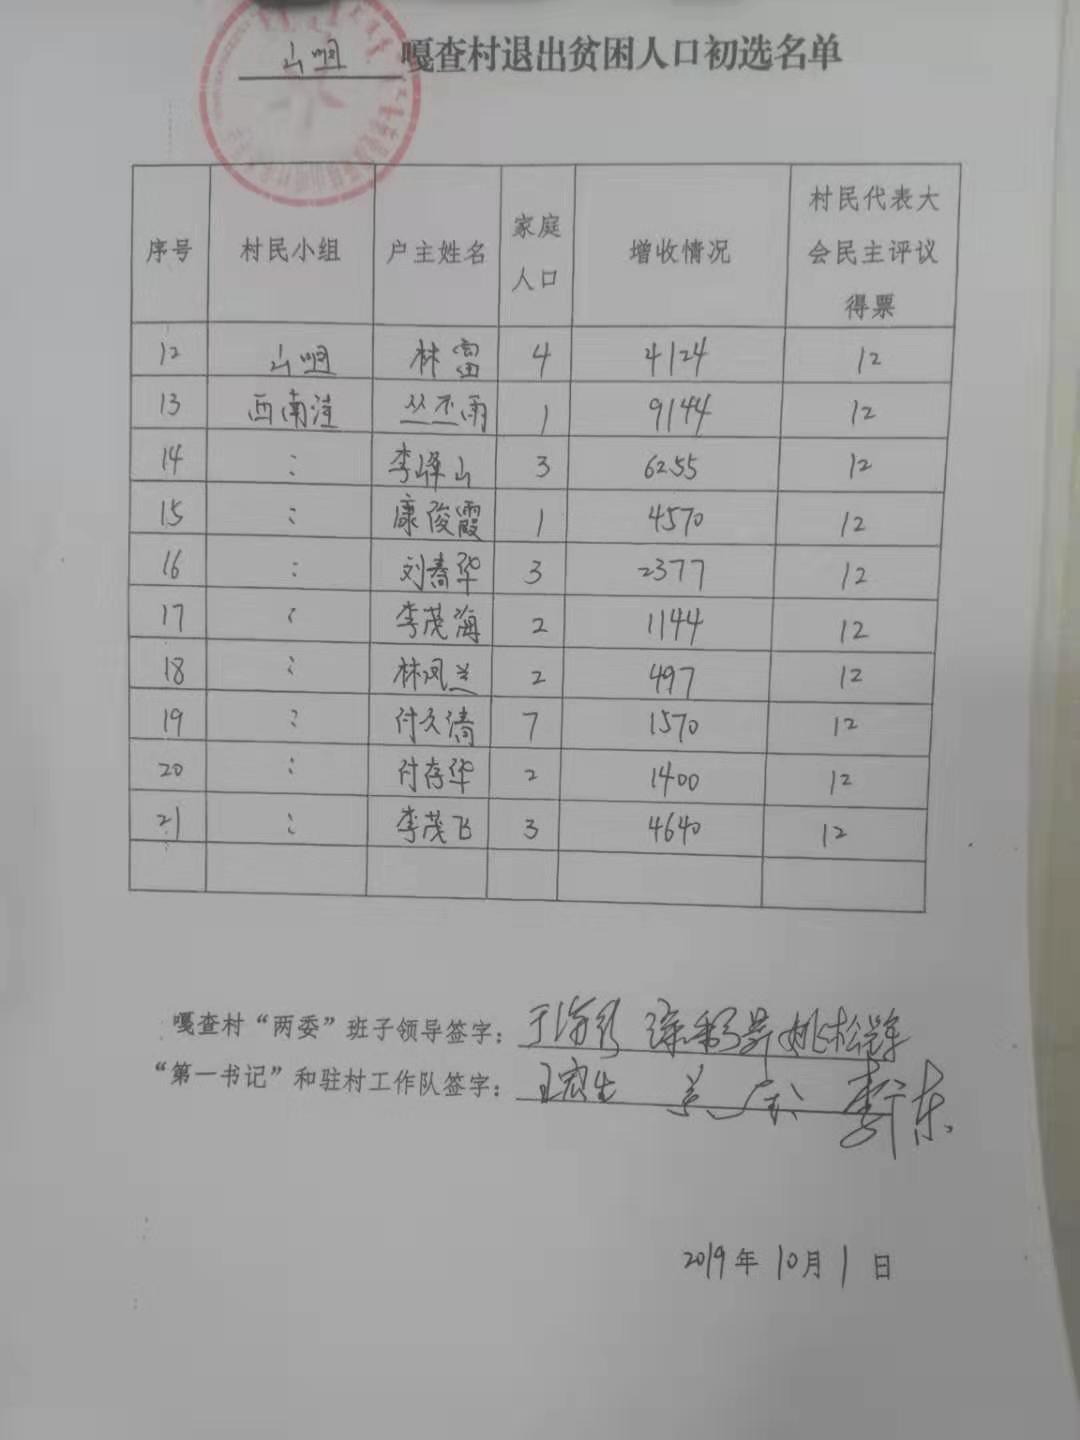 山咀 嘎查村退出贫困人口初选名单
序号 村民小组 户主姓名 家庭人口 增收情况 村民代表大会民主评议得票
12 山咀 林富 4 4124 12
13 西南洼 丛丕雨 1 9144 12
14 : 李峰山 3 6255 12
15 : 康俊霞 1 4570 12
16 : 刘春华 3 2377 12
17 : 李茂海 2 1144 12
18 : 林凤兰 2 497 12
19 : 付久清 7 1570 12
20 : 付存华 2 1400 12
21 : 李茂飞 3 4640 12
嘎查村“两委”班子领导签字：
“第一书记”和驻村工作队签字：
2019年10月1日